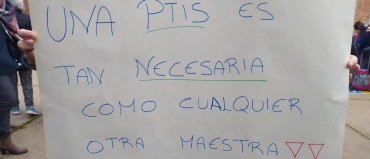 UNA PTIS ES
TAN NECESARIA
COMO CUALQUIER
OTRA MAESTRA